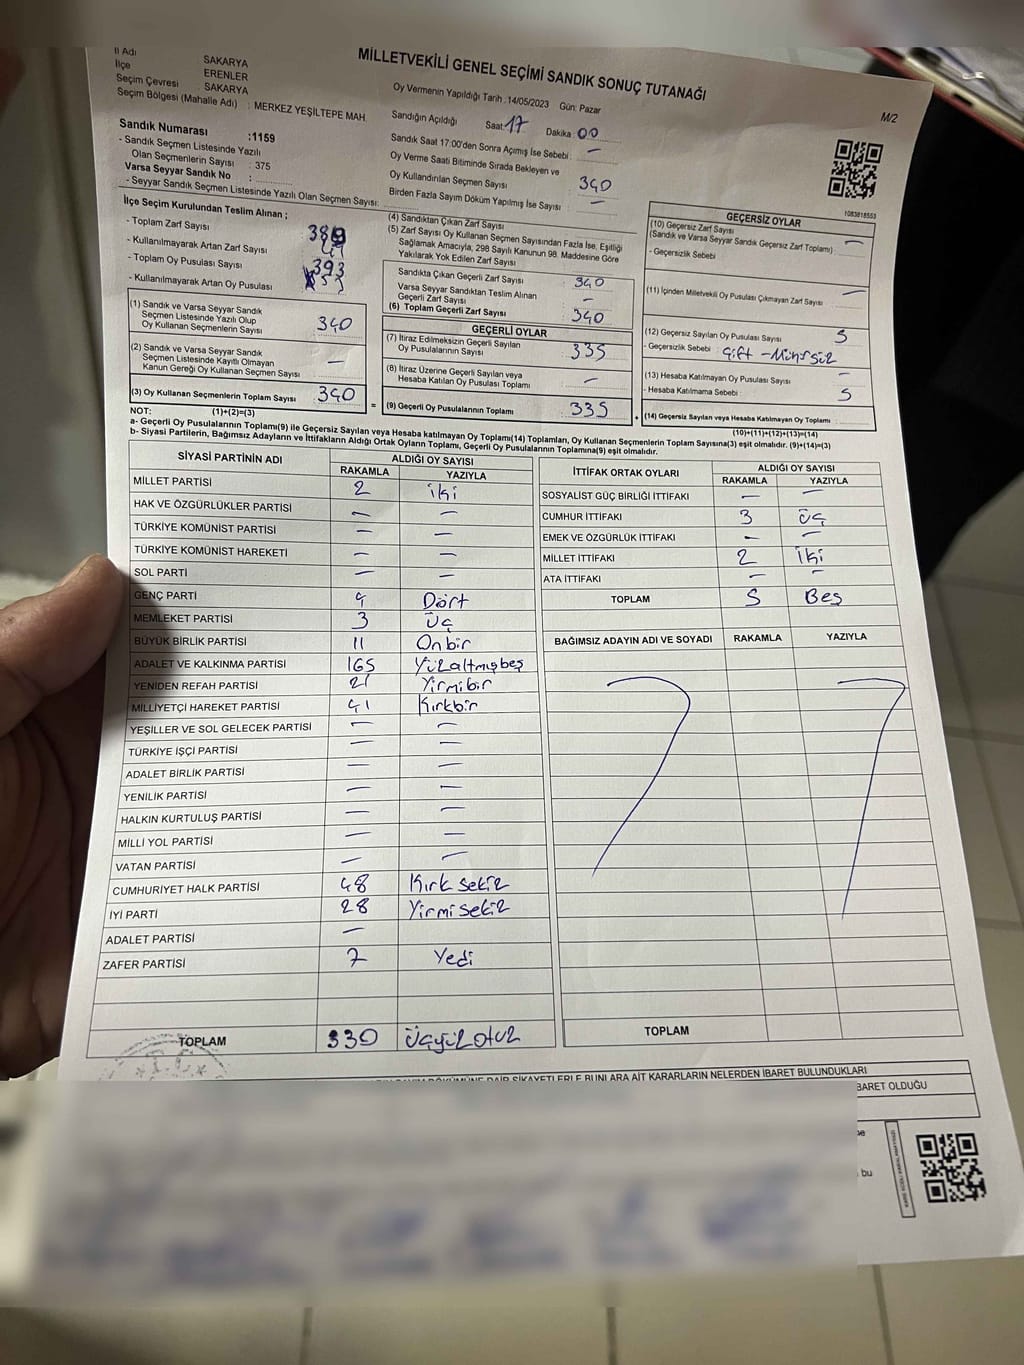 MİLLETVEKİLİ GENEL SEÇİMİ SANDIK SONUÇ TUTANAĞI
M/2
İl Adı SAKARYA
İlçe ERENLER
Seçim Çevresi : SAKARYA
Seçim Bölgesi (Mahalle Adı) : MERKEZ YEŞİLTEPE MAH.
Sandık Numarası :1159
- Sandık Seçmen Listesinde Yazılı
Olan Seçmenlerin Sayısı : 375
Varsa Seyyar Sandık No :
- Seyyar Sandık Seçmen Listesinde Yazılı Olan Seçmen Sayısı:
Oy Vermenin Yapıldığı Tarih :14/05/2023 Gün: Pazar
Sandığın Açıldığı Saat: 17 Dakika: 00
Sandık Saat 17:00'den Sonra Açımış İse Sebebi : —
Oy Verme Saati Bitiminde Sırada Bekleyen ve
Oy Kullandırılan Seçmen Sayısı 340
Birden Fazla Sayım Döküm Yapılmış İse Sayısı : —
1083818553
İlçe Seçim Kurulundan Teslim Alınan ;
- Toplam Zarf Sayısı
- Kullanılmayarak Artan Zarf Sayısı
- Toplam Oy Pusulası Sayısı 393
- Kullanılmayarak Artan Oy Pusulası
(1) Sandık ve Varsa Seyyar Sandık
Seçmen Listesinde Yazılı Olup
Oy Kullanan Seçmenlerin Sayısı 340
(2) Sandık ve Varsa Seyyar Sandık
Seçmen Listesinde Kayıtlı Olmayan
Kanun Gereği Oy Kullanan Seçmen Sayısı —
(3) Oy Kullanan Seçmenlerin Toplam Sayısı 340 =
(4) Sandıktan Çıkan Zarf Sayısı
(5) Zarf Sayısı Oy Kullanan Seçmen Sayısından Fazla İse, Eşitliği
Sağlamak Amacıyla, 298 Sayılı Kanunun 98. Maddesine Göre
Yakılarak Yok Edilen Zarf Sayısı
Sandıkta Çıkan Geçerli Zarf Sayısı 340
Varsa Seyyar Sandıktan Teslim Alınan
Geçerli Zarf Sayısı —
(6) Toplam Geçerli Zarf Sayısı 340
GEÇERLİ OYLAR
(7) İtiraz Edilmeksizin Geçerli Sayılan
Oy Pusulalarının Sayısı 335
(8) İtiraz Üzerine Geçerli Sayılan veya
Hesaba Katılan Oy Pusulası Toplamı —
(9) Geçerli Oy Pusulalarının Toplamı 335
GEÇERSİZ OYLAR
(10) Geçersiz Zarf Sayısı
(Sandık ve Varsa Seyyar Sandık Geçersiz Zarf Toplamı) : —
- Geçersizlik Sebebi
(11) İçinden Milletvekili Oy Pusulası Çıkmayan Zarf Sayısı : —
(12) Geçersiz Sayılan Oy Pusulası Sayısı : 5
- Geçersizlik Sebebi : Çift - Mühürsüz
(13) Hesaba Katılmayan Oy Pusulası Sayısı : —
- Hesaba Katılmama Sebebi : 5
(14) Geçersiz Sayılan veya Hesaba Katılmayan Oy Toplamı :
(10)+(11)+(12)+(13)=(14)
NOT: (1)+(2)=(3)
a- Geçerli Oy Pusulalarının Toplamı(9) ile Geçersiz Sayılan veya Hesaba katılmayan Oy Toplamı(14) Toplamları, Oy Kullanan Seçmenlerin Toplam Sayısına(3) eşit olmalıdır. (9)+(14)=(3)
b- Siyasi Partilerin, Bağımsız Adayların ve İttifakların Aldığı Ortak Oyların Toplamı, Geçerli Oy Pusulalarının Toplamına(9) eşit olmalıdır.
SİYASİ PARTİNİN ADI ALDIĞI OY SAYISI
RAKAMLA YAZIYLA
MİLLET PARTİSİ 2 iki
HAK VE ÖZGÜRLÜKLER PARTİSİ — —
TÜRKİYE KOMÜNİST PARTİSİ — —
TÜRKİYE KOMÜNİST HAREKETİ — —
SOL PARTİ — —
GENÇ PARTİ 4 Dört
MEMLEKET PARTİSİ 3 Üç
BÜYÜK BİRLİK PARTİSİ 11 Onbir
ADALET VE KALKINMA PARTİSİ 165 Yüzaltmışbeş
YENİDEN REFAH PARTİSİ 21 Yirmibir
MİLLİYETÇİ HAREKET PARTİSİ 41 Kırkbir
YEŞİLLER VE SOL GELECEK PARTİSİ — —
TÜRKİYE İŞÇİ PARTİSİ — —
ADALET BİRLİK PARTİSİ — —
YENİLİK PARTİSİ — —
HALKIN KURTULUŞ PARTİSİ — —
MİLLİ YOL PARTİSİ — —
VATAN PARTİSİ — —
CUMHURİYET HALK PARTİSİ 48 Kırk sekiz
İYİ PARTİ 28 Yirmi sekiz
ADALET PARTİSİ —
ZAFER PARTİSİ 7 Yedi
TOPLAM 330 Üçyüz otuz
İTTİFAK ORTAK OYLARI ALDIĞI OY SAYISI
RAKAMLA YAZIYLA
SOSYALİST GÜÇ BİRLİĞİ İTTİFAKI — —
CUMHUR İTTİFAKI 3 Üç
EMEK VE ÖZGÜRLÜK İTTİFAKI — —
MİLLET İTTİFAKI 2 iki
ATA İTTİFAKI — —
TOPLAM 5 Beş
BAĞIMSIZ ADAYIN ADI VE SOYADI RAKAMLA YAZIYLA
TOPLAM
ŞİKAYETLERLE BUNLARA AİT KARARLARIN NELERDEN İBARET BULUNDUKLARI
BARET OLDUĞU
bu